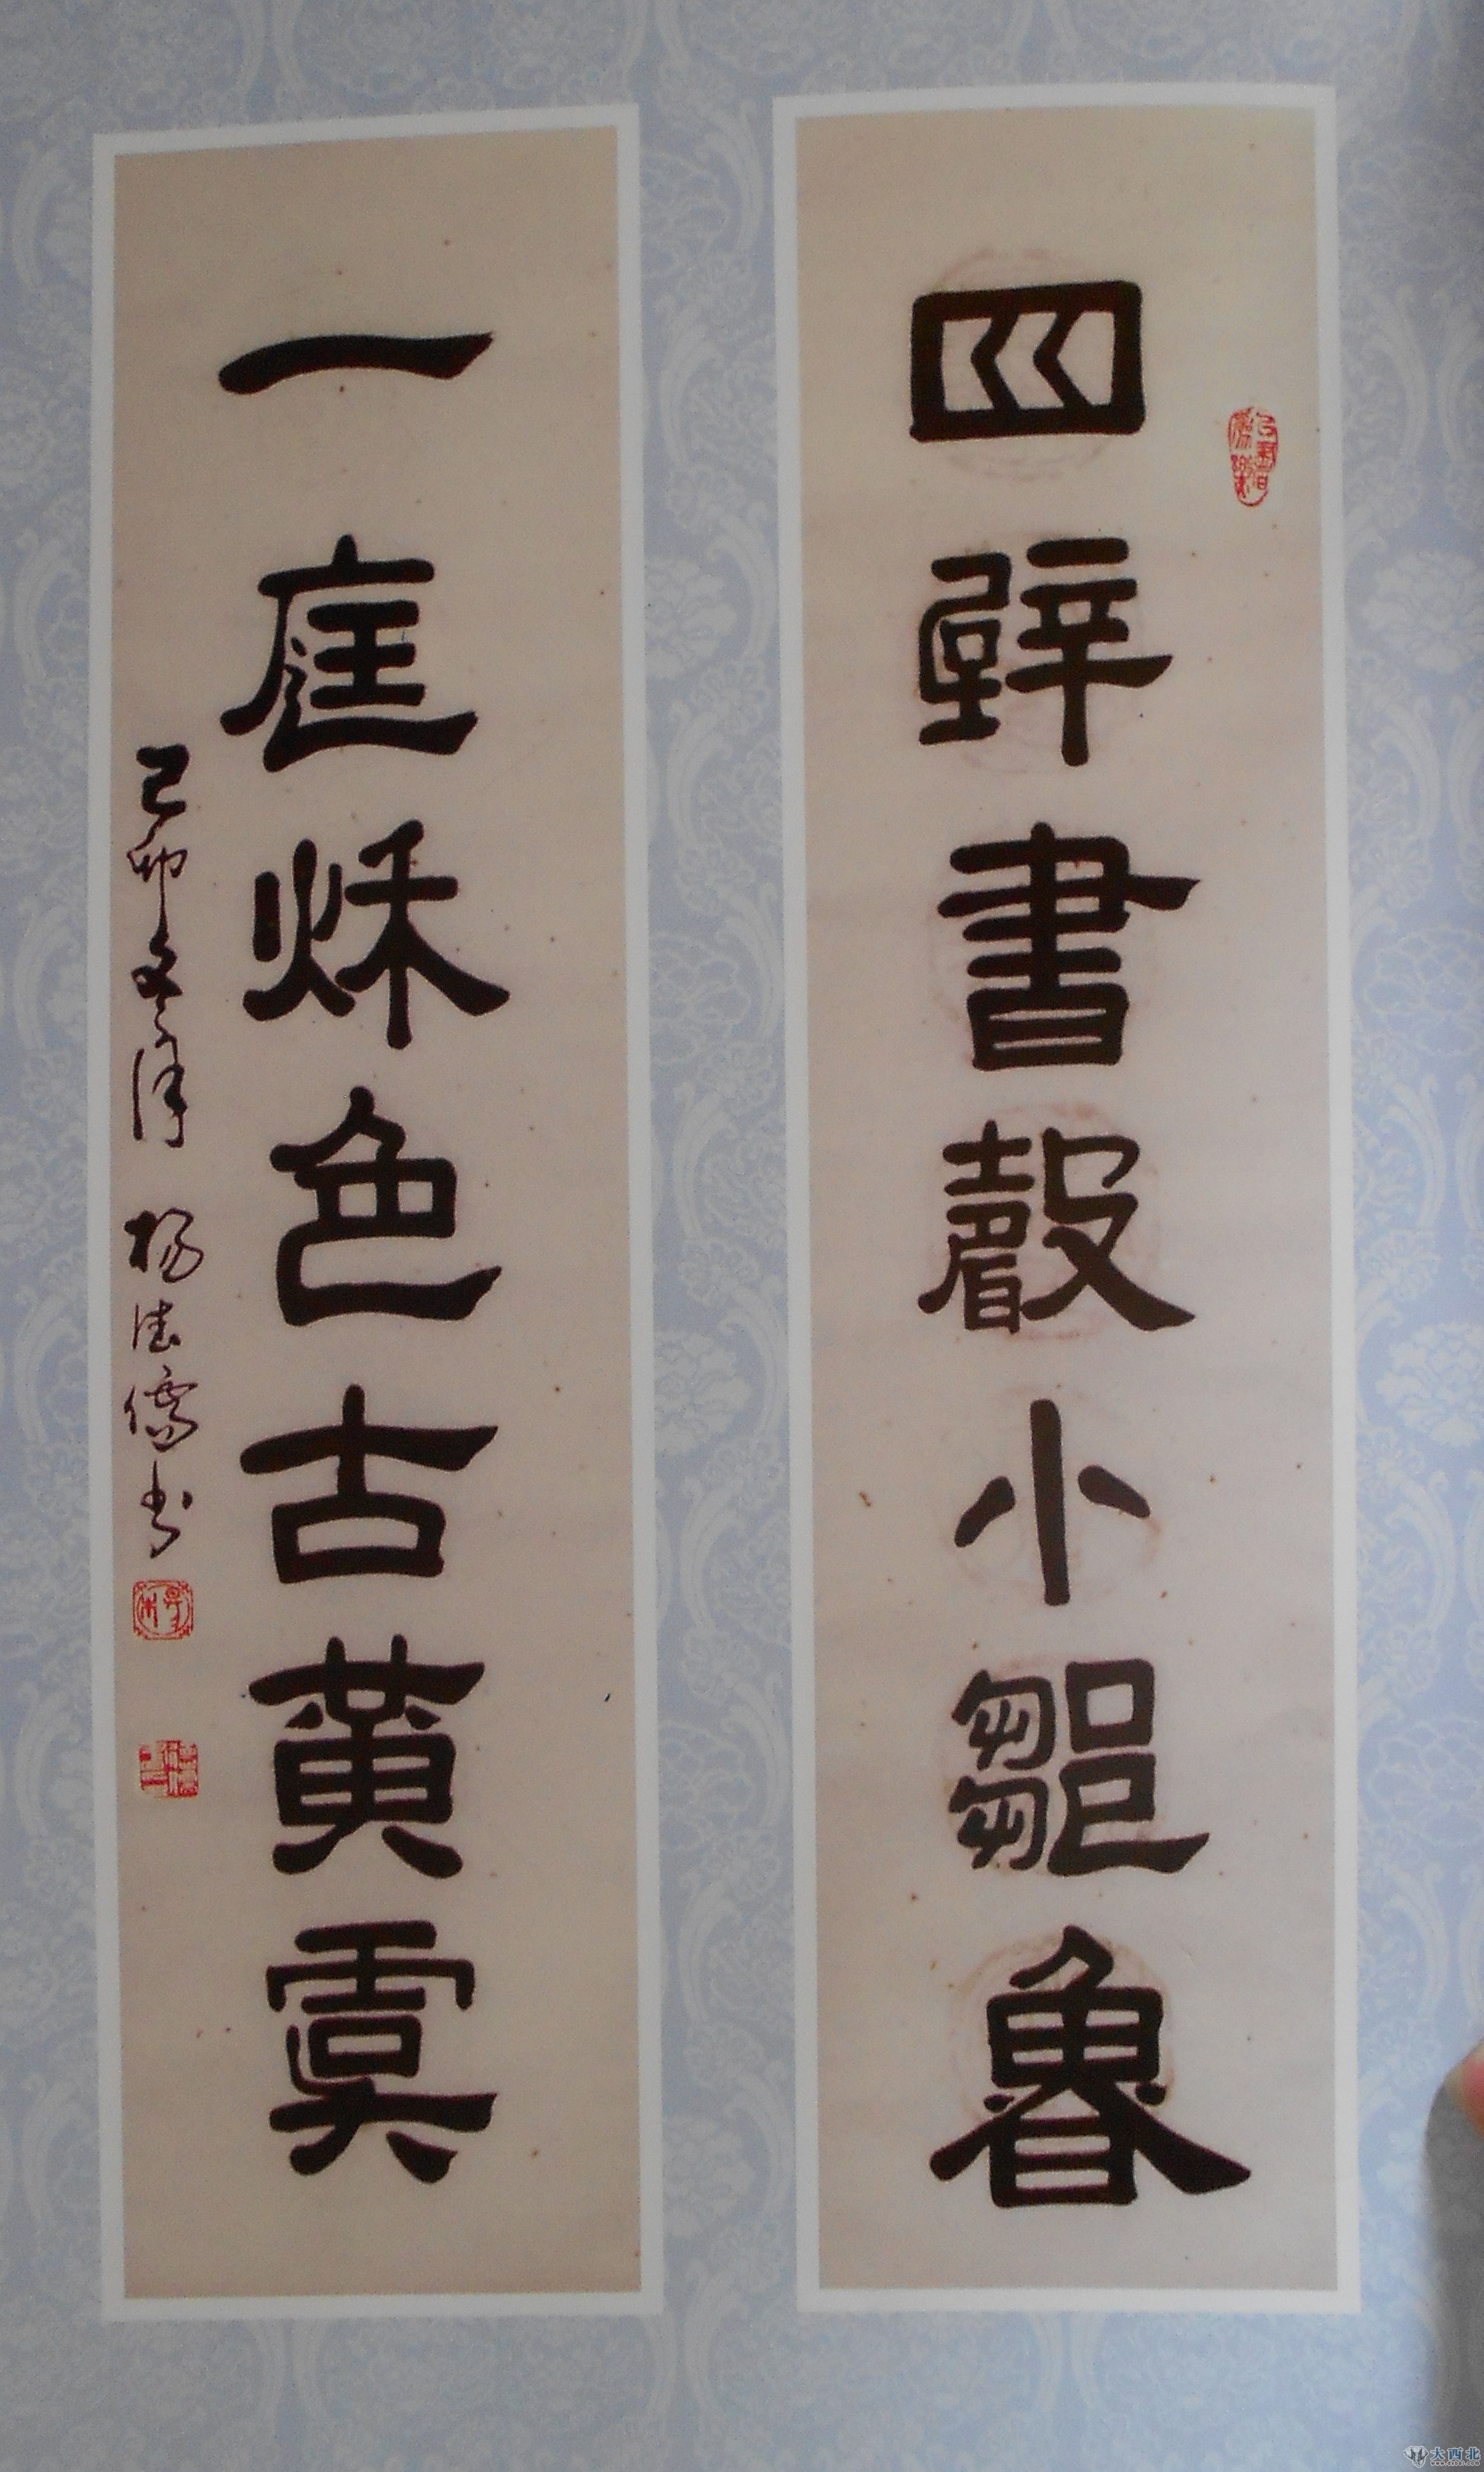 四壁書聲小鄒魯
一庭秌色古黄虞
己卯冬月 楊法儒书
大西北